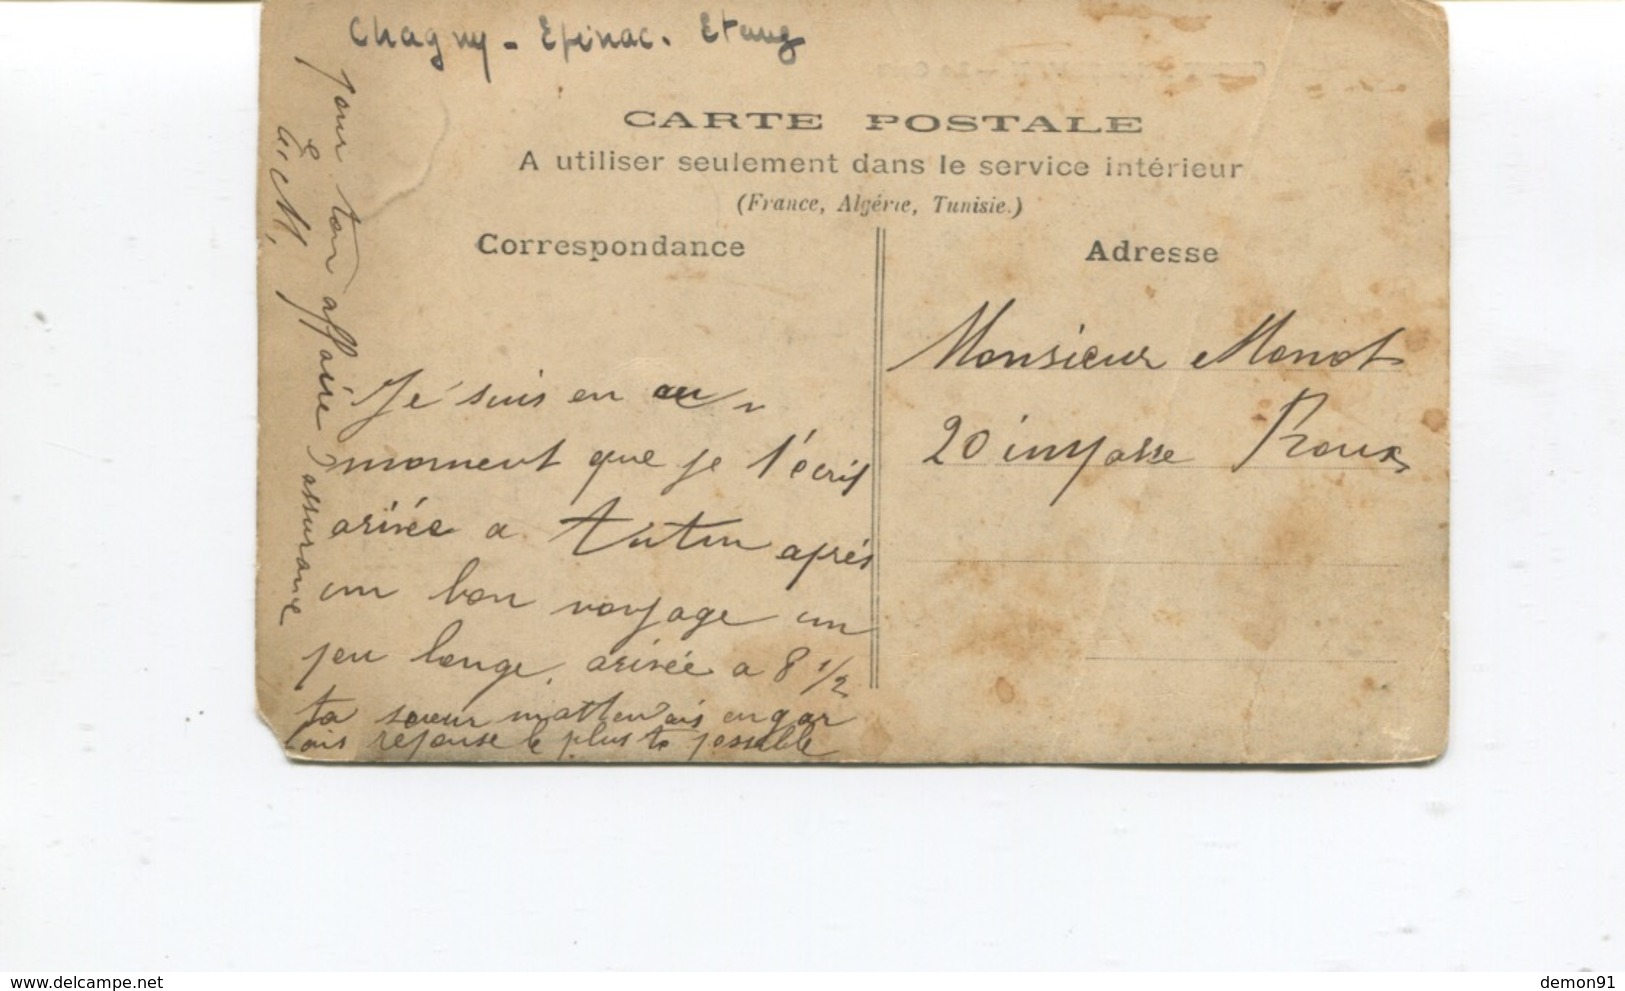 Chagny - Epinac. Etang
CARTE POSTALE
A utiliser seulement dans le service intérieur
(France, Algérie, Tunisie.)
Correspondance
Adresse
Monsieur Monot
20 impasse Roux
Je suis en au
moment que je t'écris
arivée a Autun après
un bon voyage un
peu longe, arivée a 8 1/2
ta soeur
reponse le plus to possible
pour ton affaire d'assurance
© www.delcampe.net
demon91